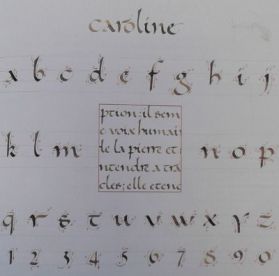 caroline
a b c d e f g h i j
ption; il sem
e voix humai
k l m de la pierre et n o p
ntendre a tra
cles; elle etend
q r s t u v w x y z
1 2 3 4 5 6 7 8 9 0